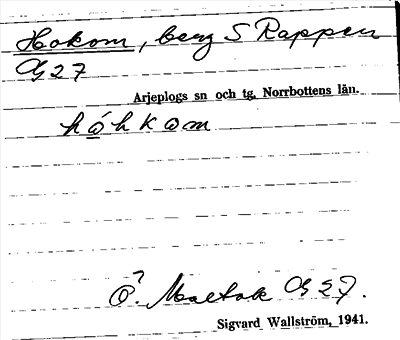 Hokom, berg S Rappen
G 27
Arjeplogs sn och tg, Norrbottens län.
håhkom
Ö. Maltak G 27.
Sigvard Wallström, 1941.